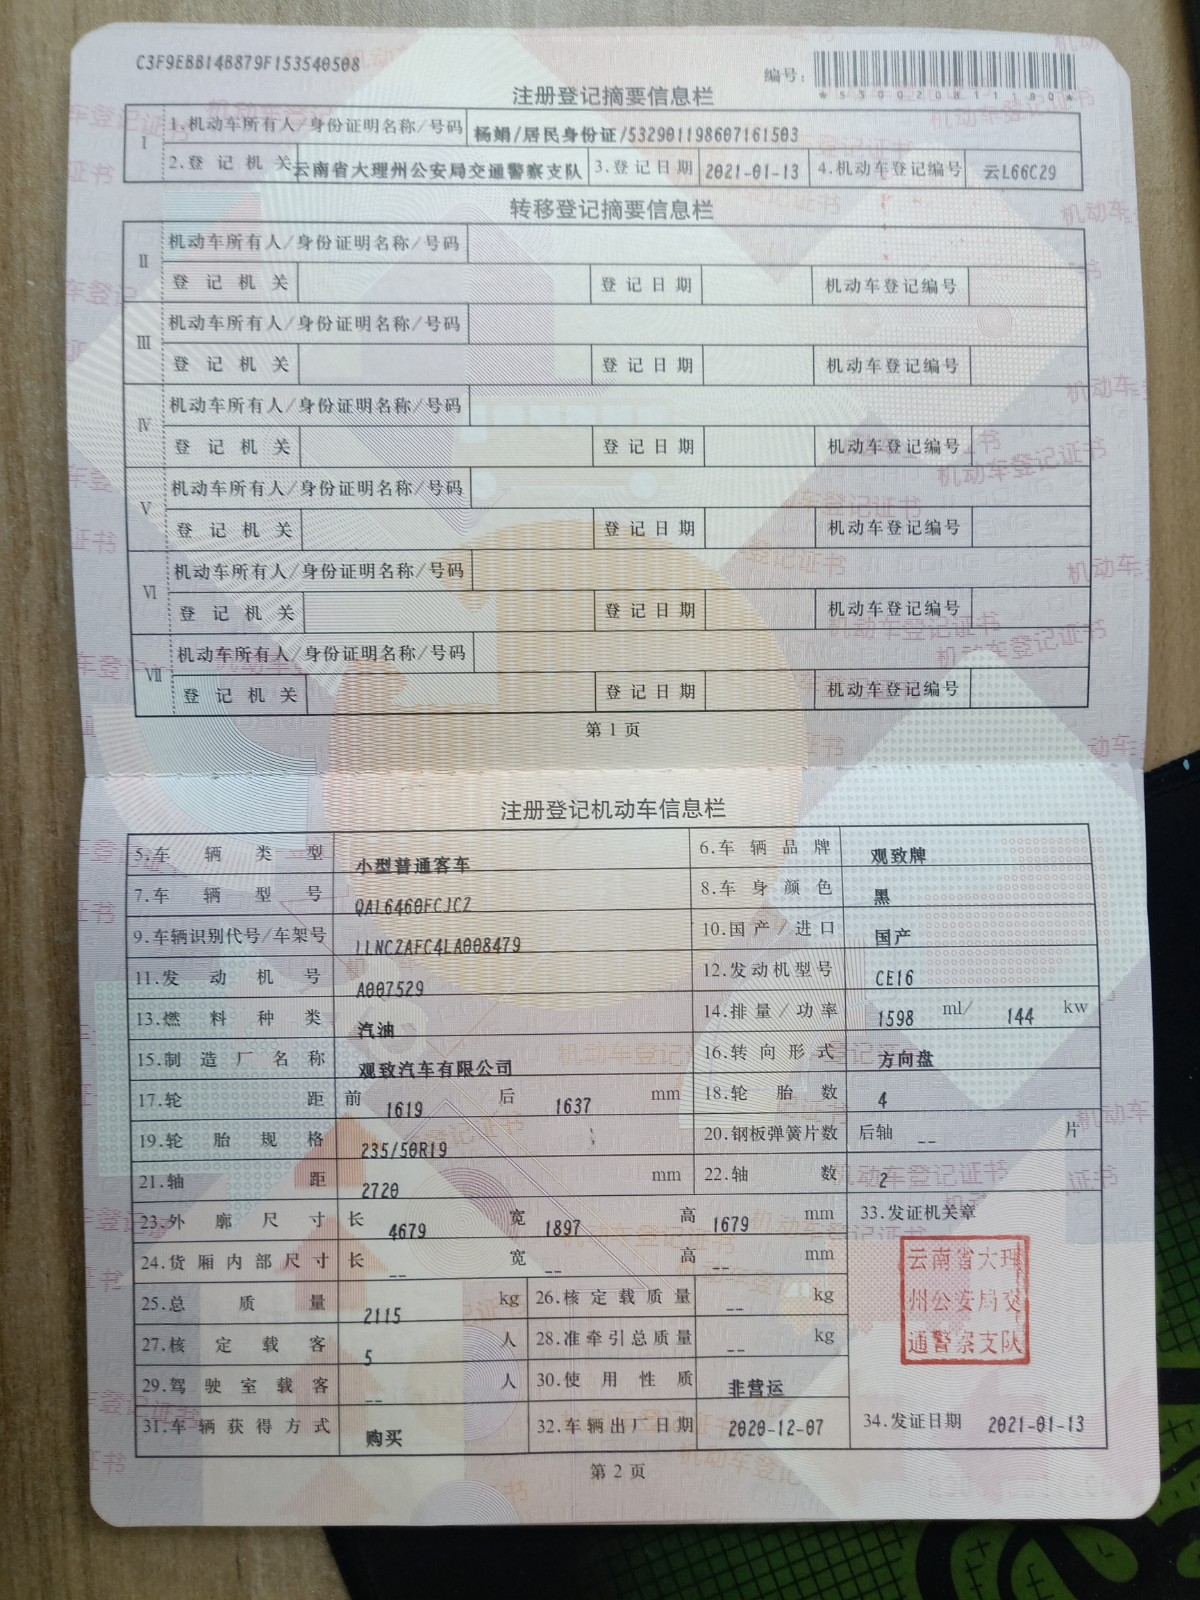 C3F9EBB14B879F153540508
编号:
*530020811180*
注册登记摘要信息栏
I 1.机动车所有人/身份证明名称/号码 杨娟/居民身份证/532901198607161503
2.登记机关 云南省大理州公安局交通警察支队 3.登记日期 2021-01-13 4.机动车登记编号 云L66C29
转移登记摘要信息栏
II 机动车所有人/身份证明名称/号码
登记机关 登记日期 机动车登记编号
III 机动车所有人/身份证明名称/号码
登记机关 登记日期 机动车登记编号
IV 机动车所有人/身份证明名称/号码
登记机关 登记日期 机动车登记编号
V 机动车所有人/身份证明名称/号码
登记机关 登记日期 机动车登记编号
VI 机动车所有人/身份证明名称/号码
登记机关 登记日期 机动车登记编号
VII 机动车所有人/身份证明名称/号码
登记机关 登记日期 机动车登记编号
第1页
注册登记机动车信息栏
5.车辆类型 小型普通客车 6.车辆品牌 观致牌
7.车辆型号 QAL6460FCJCZ 8.车身颜色 黑
9.车辆识别代号/车架号 LLNCZAFC4LA008479 10.国产/进口 国产
11.发动机号 A007529 12.发动机型号 CE16
13.燃料种类 汽油 14.排量/功率 1598 ml/ 144 kw
15.制造厂名称 观致汽车有限公司 16.转向形式 方向盘
17.轮距 前 1619 后 1637 mm 18.轮胎数 4
19.轮胎规格 235/50R19 20.钢板弹簧片数 后轴 -- 片
21.轴距 2720 mm 22.轴数 2
23.外廓尺寸 长 4679 宽 1897 高 1679 mm 33.发证机关章
24.货厢内部尺寸 长 -- 宽 -- 高 -- mm
云南省大理
州公安局交
通警察支队
25.总质量 2115 kg 26.核定载质量 -- kg
27.核定载客 5 人 28.准牵引总质量 -- kg
29.驾驶室载客 -- 人 30.使用性质 非营运
31.车辆获得方式 购买 32.车辆出厂日期 2020-12-07 34.发证日期 2021-01-13
第2页